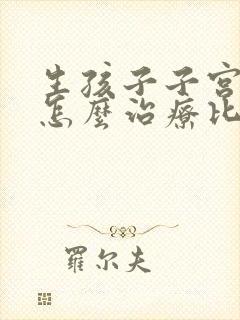 生孩子子宮
怎麼治療比
羅尔夫